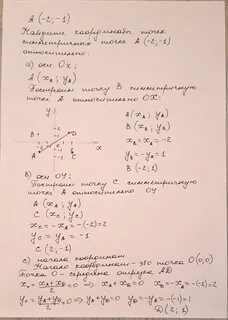 A (-2; -1)
Найдите координаты точек
симметричных точке A (-2; -1)
относительно:
а) оси OX;
A (x_A; y_A)
Построим точку B симметричную
точке A относительно OX:
y
B
D
A
C
x
A (x_A; y_A)
B (x_A; y_A)
x_B = x_A = -2
y_B = -y_A
y_B = -(-1) = 1
B (-2; 1)
в) оси OY;
Построим точку C симметричную
точке A относительно OY
A (x_A; y_A)
C (x_C; y_C)
x_C = -x_A = -(-2) = 2
y_C = y_A = -1
C (2; -1)
с) начала координат
Начало координат - это точка O (0; 0)
Точка O - середина отрезка AD
x_O = (x_A + x_D)/2 = 0 => x_A + x_D = 0 x_D = -x_A = -(-2) = 2
y_O = (y_A + y_D)/2 = 0 => y_A + y_D = 0 y_D = -y_A = -(-1) = 1
D (2; 1)